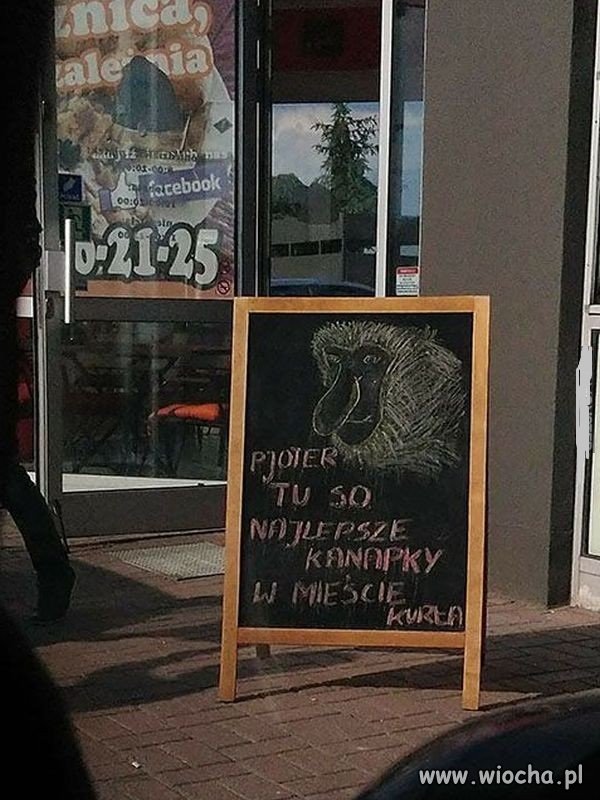 znica,
zaleźnia
facebook
0-21-25
PJOTER
TU SO
NAJLEPSZE
KANAPKY
W MIEŚCIE
KURŁA
www.wiocha.pl